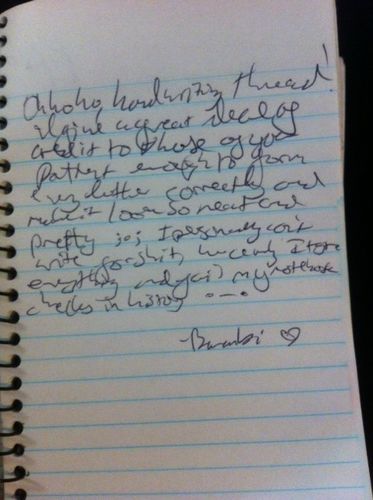 Ohhoho, handwriting thread!
I give a great deal of
credit to those of you
patient enough to form
every letter correctly and
make it look so neat and
pretty I personally can't
write for shit,
everything and my notebook
checks in history